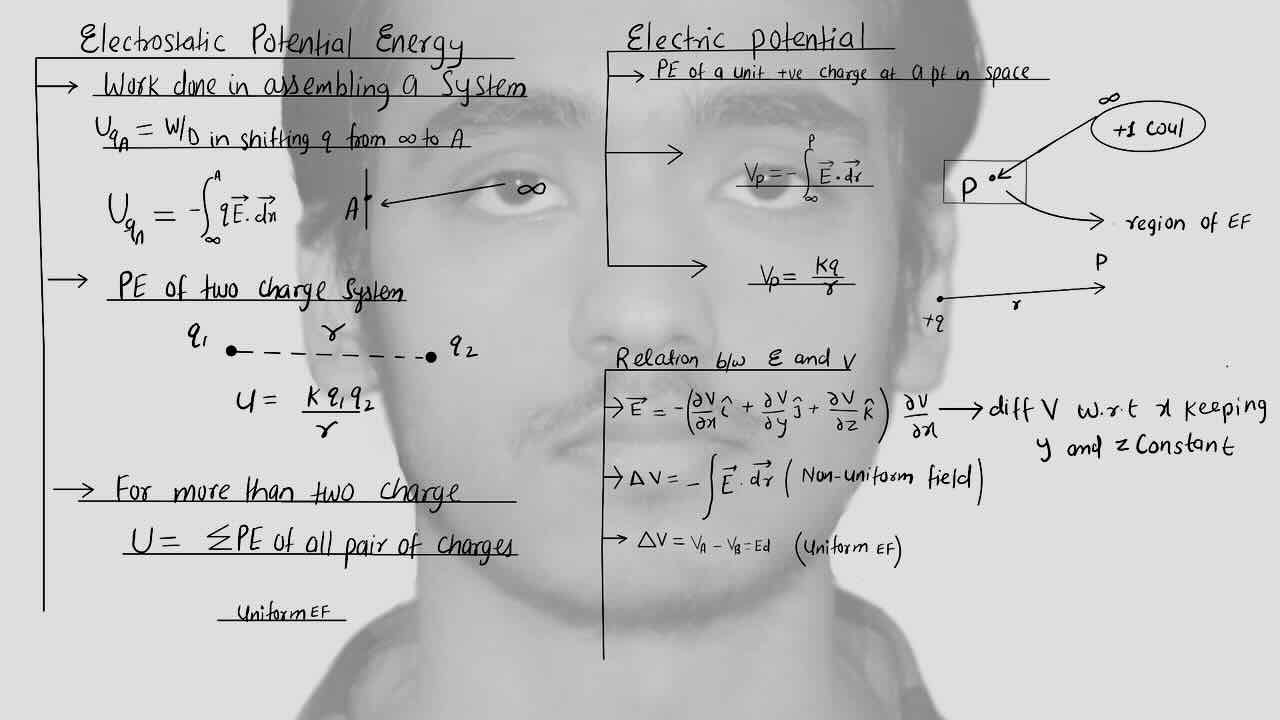 Electrostatic Potential Energy
→ Work done in assembling a System
U_qA = W/D in shifting q from ∞ to A
U_qA = -∫_∞^A qE⃗.dx⃗
A ∞
→ PE of two charge System
q1 r q2
U = Kq1q2/r
→ For more than two charge
U = ΣPE of all pair of charges
Uniform EF
Electric potential
→ PE of a unit +ve charge at a pt in space
→ Vp = -∫_∞^P E⃗.dr⃗
∞
+1 Coul
P
region of EF
→ Vp = Kq/r
P
+q r
Relation b/w E and V
→ E⃗ = -(∂V/∂x î + ∂V/∂y ĵ + ∂V/∂z k̂) ∂V/∂x → diff V w.r.t x keeping
y and z Constant
→ ΔV = -∫E⃗.dr⃗ (Non-uniform field)
→ ΔV = VA - VB = Ed (Uniform EF)